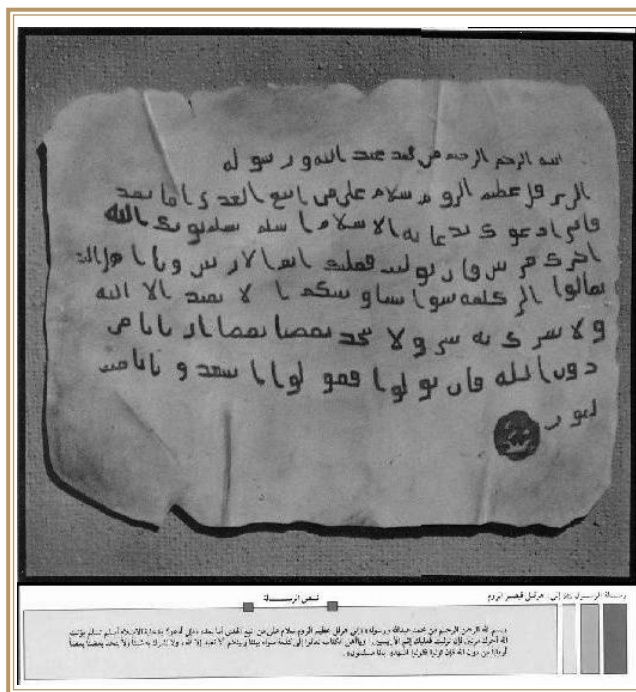 الله الرحمن الرحيم من محمد عبد الله ورسوله
الى هرقل عظيم الروم سلام على من اتبع الهدى اما بعد
فانى ادعوك بدعاية الاسلام اسلم تسلم يوتك الله
اجرك مرتين فان توليت فعليك اثم الاريسين ويا اهل الكتب
تعالوا الى كلمة سوا بيننا وبينكم الا نعبد الا الله
ولا نشرك به شيا ولا يتخذ بعضنا بعضا اربابا من
دون الله فان تولوا فقولوا اشهدوا بانا مسلمون
رسالة الرسول ﷺ إلى: هرقل قيصر الروم
نـص الرسـالـة
بسم الله الرحمن الرحيم من محمد عبدالله ورسوله إلى هرقل عظيم الروم سلام على من اتبع الهدى أما بعد، فإني أدعوك بدعاية الإسلام أسلم تسلم يؤتك
الله أجرك مرتين فإن توليت فعليك إثم الأريسيين، ويا أهل الكتاب تعالوا إلى كلمة سواء بيننا وبينكم ألا نعبد إلا الله، ولا نشرك به شيئاً ولا يتخذ بعضنا بعضاً
أرباباً من دون الله فإن تولوا فقولوا اشهدوا بأنا مسلمون.